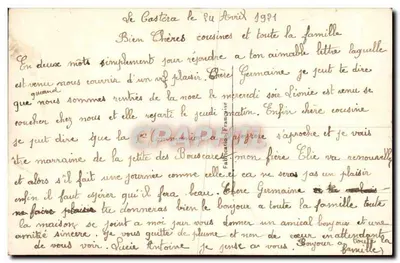 Le Castéra le 24 Avril 1921
Bien Chères cousines et toute la famille
En deux mots simplement pour répondre a ton aimable lettre laquelle
est venue nous courrir d'un vif plaisir. Chère Germaine je peut te dire
quand
que nous sommes rentrés de la noce le mercredi soir Léonie est venu se
coucher chez nous et elle reparte le jeudi matin. Enfin chère cousine
je peut dire que la s'aproche et je vais
être marraine de la petite des Bouscarel mon fière Elie va renouvelle
et alors s'il fait une journée comme celle et ca ne sera pas un plaisir
enfin il faut espérer qu'il fera beau. Chère Germaine
tu donneras bien le bonjour a toute la famille toute
la maison se joint a moi pour vous donner un amical bonjour et une
amitié sincère. Je vous quitte de plume et non de cœur en attendant
de vous voir. Lucie Antoine je pense a vous. Bonjour a toute la
famille
Fabrication Française